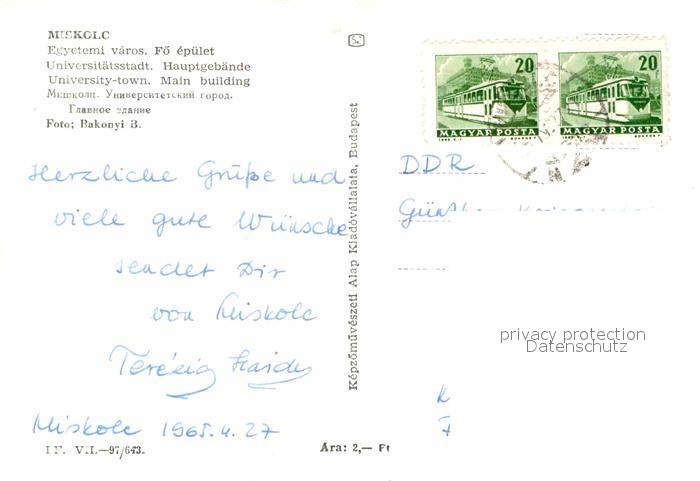 MISKOLC
Egyetemi város. Fő épület
Universitätsstadt. Hauptgebände
University-town. Main building
Мишколц. Университетский город.
Главное здание
Foto; Bakonyi B.
Herzliche Grüße und
viele gute Wünsche
sendet Dir
von Miskolc
Miskolc 1965.4.27
I F. V.I.—97/643.
Ára: 2,— Ft
Képzőművészeti Alap Kiadóvállalata, Budapest
20
MAGYAR POSTA
20
MAGYAR POSTA
DDR
privacy protection
Datenschutz
K
7